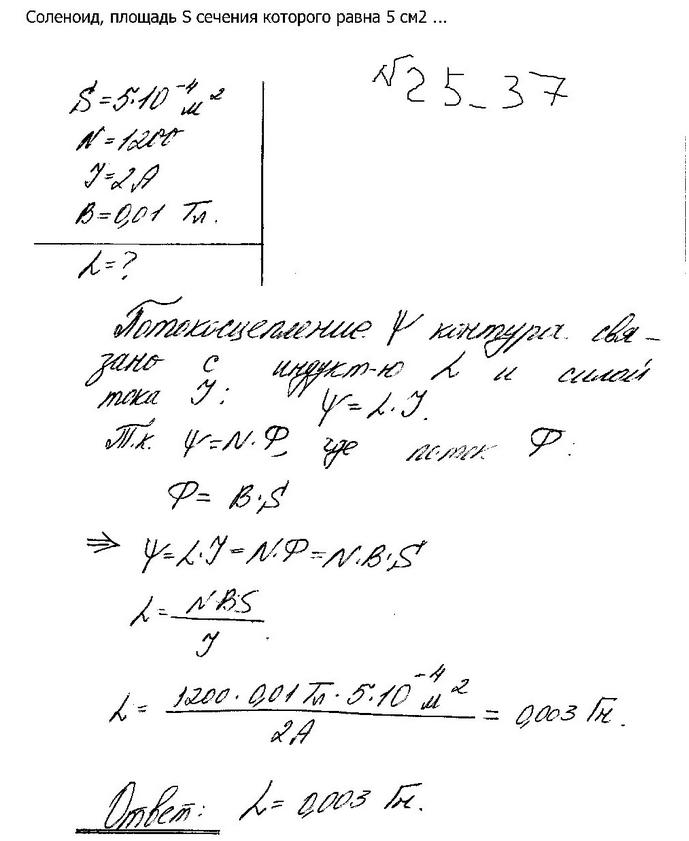 Соленоид, площадь S сечения которого равна 5 см2 ...
№25-37
S=5·10⁻⁴ м²
N=1200
I=2А
B=0,01 Тл.
L=?
Потокосцепление Ψ контура свя-
зано с индукт-ю L и силой
тока I: Ψ=L·I.
Т.к. Ψ=N·Ф, где поток Ф:
Ф= B·S
⇒ Ψ=L·I=N·Ф=N·B·S
L= NBS / I.
L= 1200·0,01 Тл·5·10⁻⁴ м² / 2А = 0,003 Гн.
Ответ: L= 0,003 Гн.